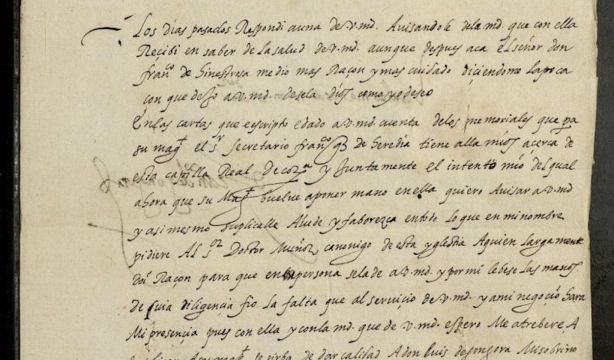 Los días pasados Respondi a una de v.md. Avisandole dela md. que con ella
Recibi en saber de la salud de v.md. aunque despues aca el señor don
fran.co de hinestrosa me dio mas Raçon y mas cuidado diçiendome la poca
con que dexo a v.md. desela dios como yo deseo
En las cartas que e scripto e dado a v.md. cuenta de los memoriales que pa
su mag.t el s.r secretario fran.co gz de heredia tiene alla mios acerca de
esta capilla Real de cor.a y Juntamente el intento mio del qual
ahora que su Mag.t buelve a poner mano en ella quiero Avisar a v.md
y asi mismo suplicalle Aiude y faborezca en todo lo que en mi nombre
pidiere Al s.r Dottor Muñoz canonigo de esta yglesia A quien largamente
doi Raçon para que en persona se la de a v.md. y por mi le bese las manos
de cuia diligencia fio la falta que al servicio de v.md. y a mi negocio hara
Mi presencia pues con ella y con la md. que de v.md. espero Me atrebere A
de dar calidad A don luis de gongora Mi sobrino